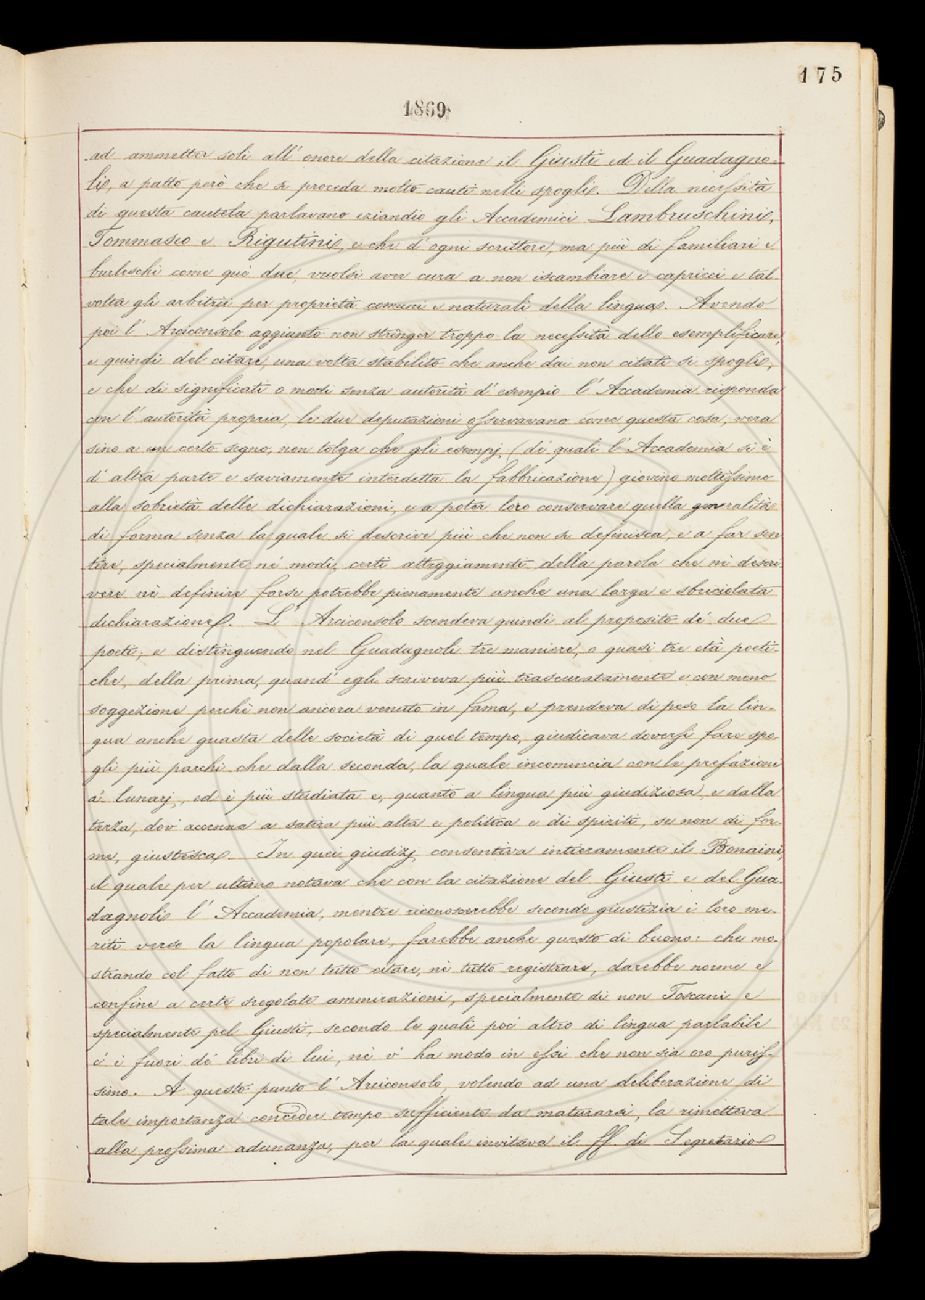 175
1869
ad ammetter soli all' onore della citazione il Giusti ed il Guadagno-
li, a patto però che si proceda molto cauti nelli spogli. Della necessità
di questa cautela parlavano eziandio gli Accademici Lambruschini,
Tommaseo e Rigutini, e che d'ogni scrittore, ma più di familiari e
burleschi come que' due, vuolsi aver cura a non iscambiare i capricci e tal-
volta gli arbitrii per proprietà comuni e naturali della lingua. Avendo
poi l' Arciconsolo aggiunto non stringer troppo la necessità dello esemplificare,
e quindi del citare, una volta stabilito che anche dai non citati si spogli,
e che di significati o modi senza autorità d' esempio l' Accademia risponda
con l' autorità propria, le due deputazioni osservavano come questa cosa, vera
sino a un certo segno, non tolga che gli esempj, (de' quali l' Accademia si è
d' altra parte e saviamente interdetta la fabbricazione) giovino moltissimo
alla sobrietà delle dichiarazioni, e a poter loro conservare quella generalità
di forma senza la quale si descrive più che non si definisca, e a far sen-
tire, specialmente ne' modi, certi atteggiamenti della parola che nè descri-
vere nè definire forse potrebbe pienamente anche una larga e sbriciolata
dichiarazione. L' Arciconsolo scendeva quindi al proposito de' due
poeti; e distinguendo nel Guadagnoli tre maniere, o quasi tre età poeti-
che, della prima, quand' egli scriveva più trascuratamente e con meno
soggezione perchè non ancora venuto in fama, e prendeva di peso la lin-
gua anche guasta delle società di quel tempo, giudicava doversi fare spo-
gli più parchi che dalla seconda, la quale incomincia con le prefazioni
a' lunarj, ed è più studiata e, quanto a lingua più giudiziosa, e dalla
terza, dov' accenna a satira più alta e politica e di spiriti, se non di for-
me, giustesca. In quei giudizj consentiva interamente il Bonaini,
il quale per ultimo notava che con la citazione del Giusti e del Gua-
dagnoli l' Accademia, mentre riconoscerebbe secondo giustizia i loro me-
riti verso la lingua popolare, farebbe anche questo di buono: che mo-
strando col fatto di non tutto citare, nè tutto registrare, darebbe norme e
confine a certe sregolate ammirazioni, specialmente di non Toscani e
specialmente pel Giusti, secondo le quali poc' altro di lingua parlabile
c' è fuori de' libri di lui, nè v' ha modo in essi che non sia oro puris-
simo. A questo punto l' Arciconsolo, volendo ad una deliberazione di
tale importanza conceder tempo sufficiente da maturarsi, la rimetteva
alla prossima adunanza, per la quale invitava il ff. di Segretario